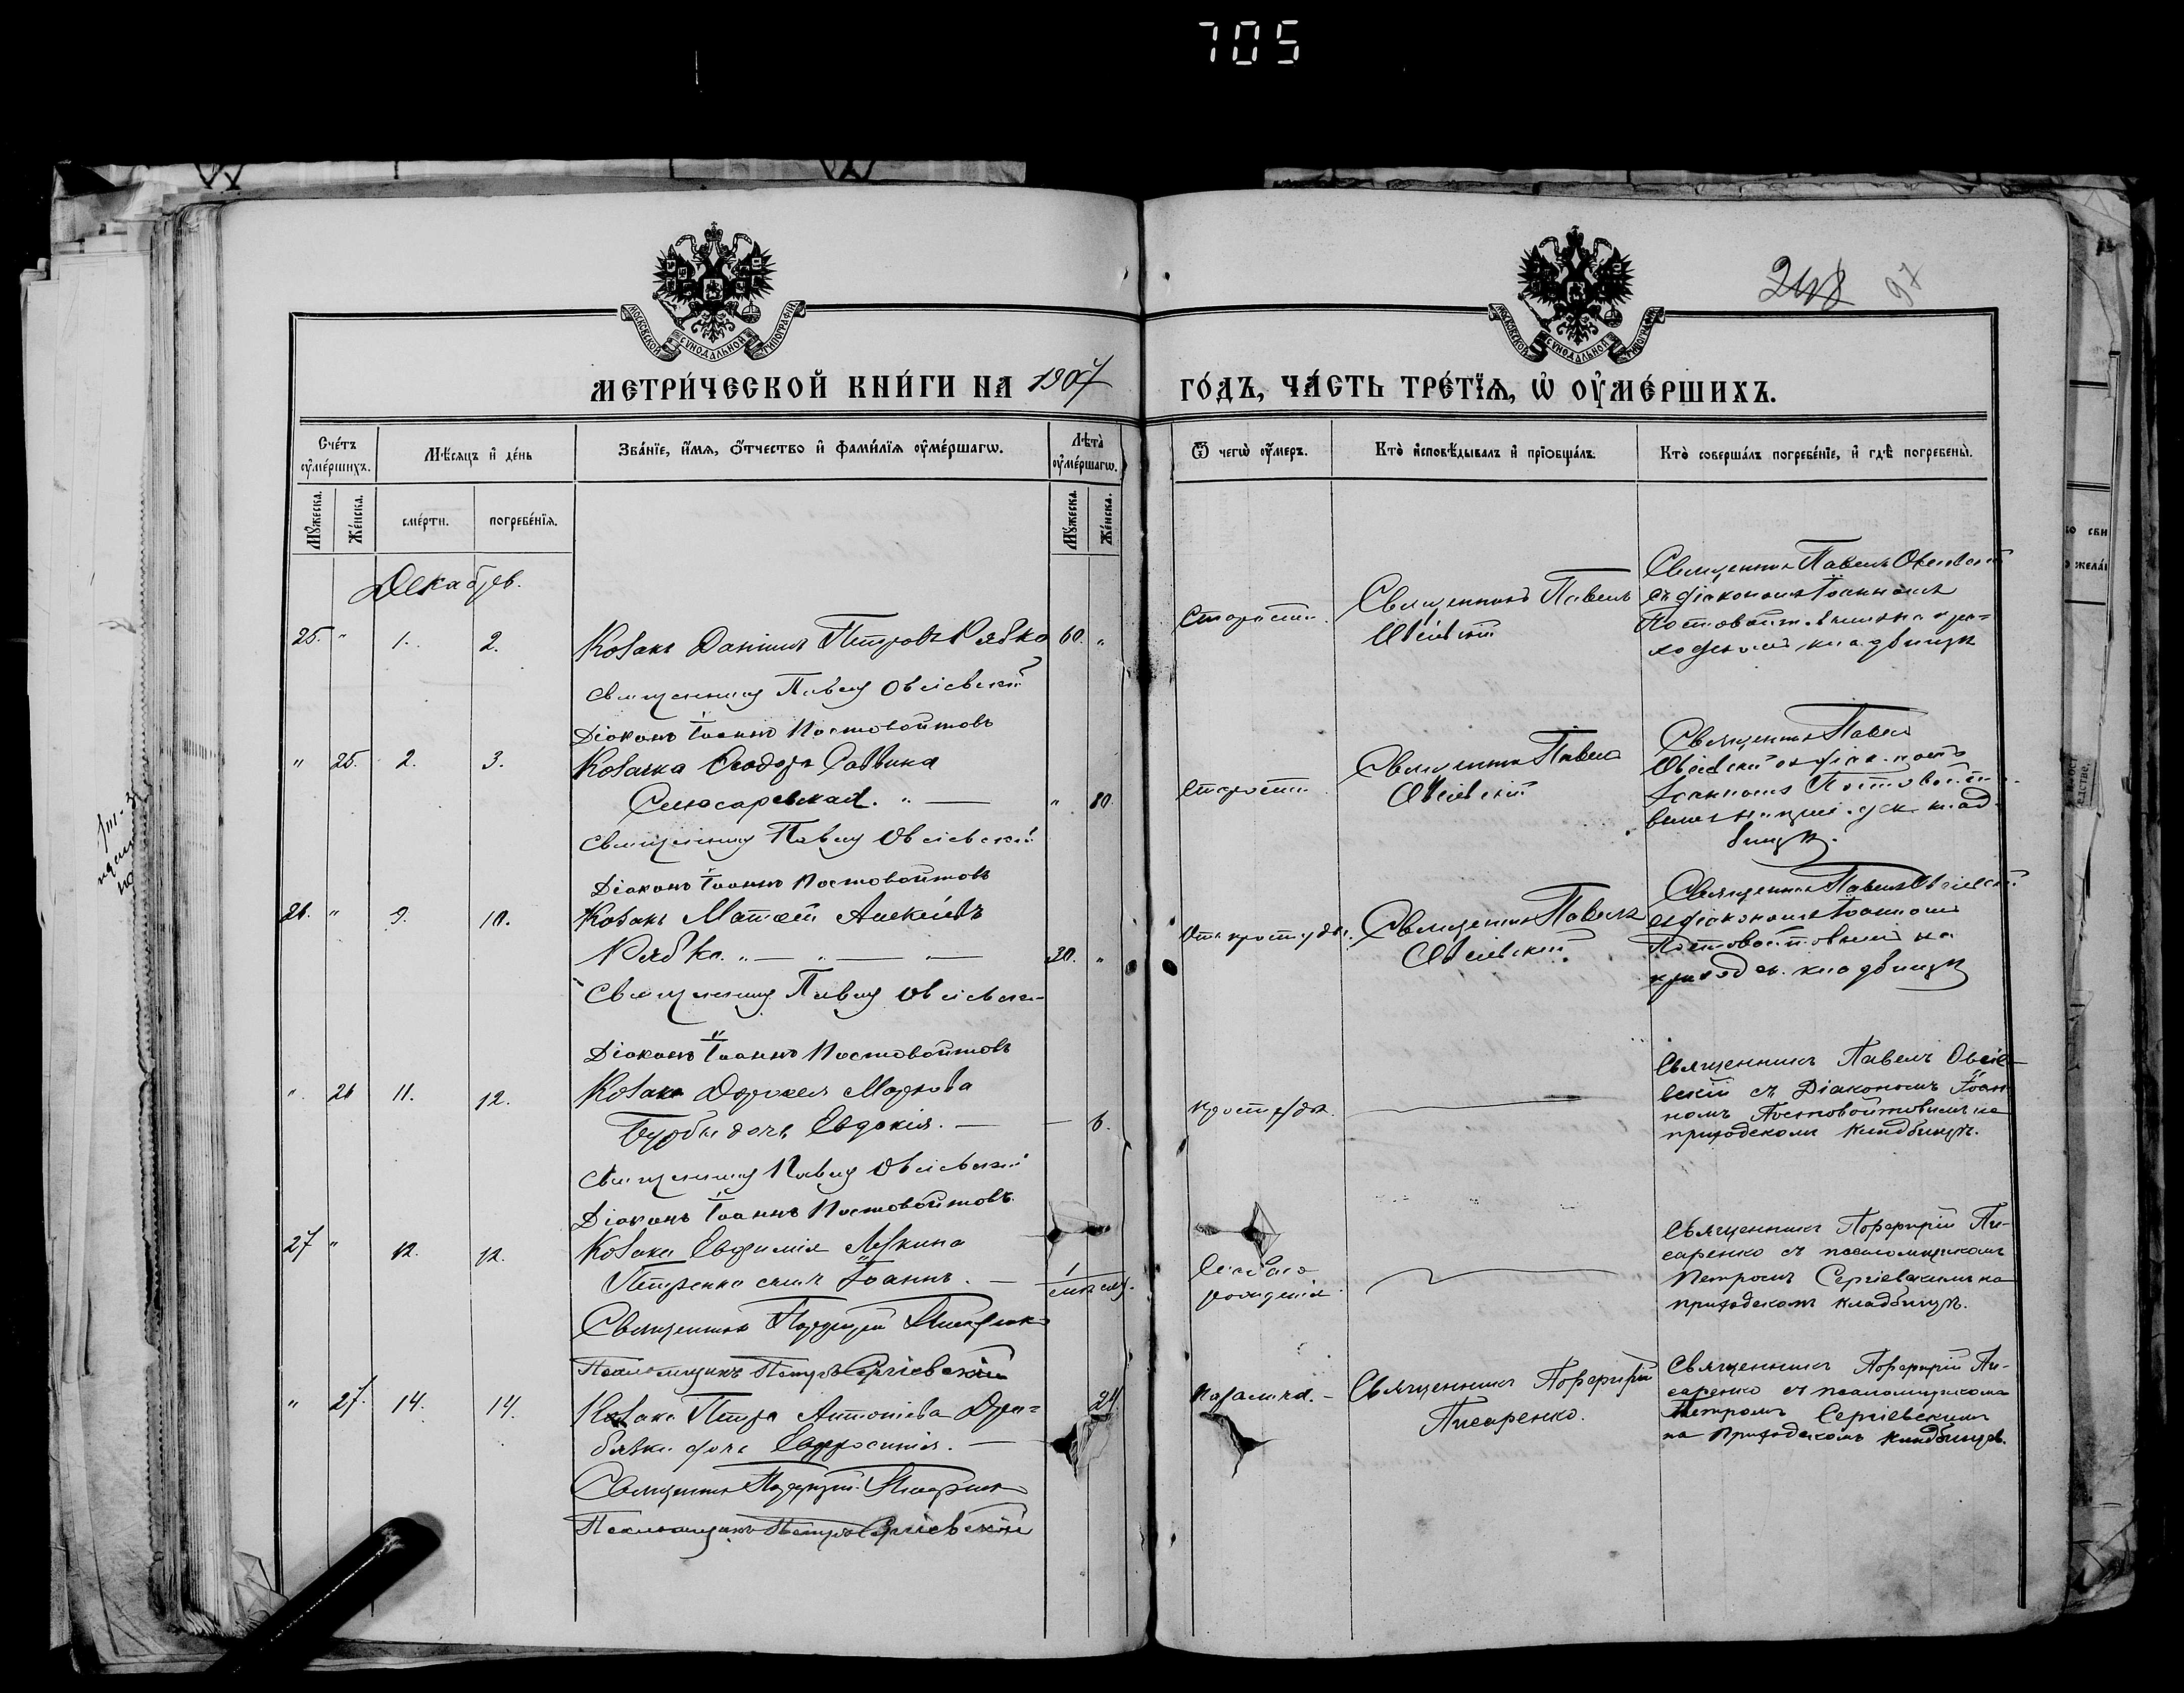 705
248 97
МОСКОВСКОЙ СѴНОДАЛЬНОЙ ТИПОГРАФІИ
МОСКОВСКОЙ СѴНОДАЛЬНОЙ ТИПОГРАФІИ
МЕТРИ́ЧЕСКОЙ КНИ́ГИ НА 1907 ГО́ДЪ, ЧА́СТЬ ТРЕ́ТЇѦ, Ѡ҆ ОУ҆МЕ́РШИХЪ.
Сче́тъ оумершихъ.
Мѣсяцъ и де́нь
Зва́нїе, и҆́мѧ, ѻ҆́тчество и҆ фами́лїѧ оу҆ме́ршагѡ.
Лѣта̀ оу҆ме́ршагѡ.
Ѿ чегѡ̀ оу҆́меръ.
Кто̀ и҆сповѣ́дывалъ и҆ прїѡбща́лъ.
Кто̀ соверша́лъ погребе́нїе, и҆ гдѣ̀ погребены̀.
Мꙋжеска. Же́нска.
сме́рти. погребе́нїѧ.
Мꙋжеска. Же́нска.
Декабрь.
25. " 1. 2. Козакъ Даніилъ Петровъ Рябко 60. "
Старости.
Священникъ Павелъ
Овсіевскій
Священникъ Павелъ Овсіевскій
съ діакономъ Іоанномъ
Постовойтовымъ на при-
ходскомъ кладбищѣ
Священникъ Павелъ Овсіевскій
Діаконъ Іоаннъ Постовойтовъ
" 25. 2. 3. Козачка Ѳеодора Саввина
Слюсаревская. " — " 80.
Старости
Священникъ Павелъ
Овсіевскій
Священникъ Павелъ
Овсіевскій съ діакономъ
Іоанномъ Постовойто-
вымъ на приход. клад-
бищѣ.
Священникъ Павелъ Овсіевскій
Діаконъ Іоаннъ Постовойтовъ
26. " 9. 10. Козакъ Матѳей Алексіевъ
Рябко. " — " — " — 30. "
Отъ простуды.
Священникъ Павелъ
Овсіевскій.
Священникъ Павелъ Овсіевскій
съ діакономъ Іоанномъ
Постовойтовымъ на
приходск. кладбищѣ
Священникъ Павелъ Овсіевскій
Діаконъ Іоаннъ Постовойтовъ
". 26 11. 12. Козака Дороѳея Маркова
Бурбы дочь Евдокія. — — 6.
простуды.
Священникъ Павелъ Овсіе-
вскій съ Діакономъ Іоан-
номъ Постовойтовымъ на
приходскомъ кладбищѣ.
Священникъ Павелъ Овсіевскій
Діаконъ Іоаннъ Постовойтовъ.
27 " 12. 12. Козака Евфимія
Петренка сынъ Іоаннъ. — 1
рожденія.
Священникъ Порфирій Пи-
саренко съ псаломщикомъ
Петромъ Сергіевскимъ на
приходскомъ кладбищѣ.
Священникъ Порфирій Писаренко
Псаломщикъ Петръ Сергіевскій
" 27. 14. 14. Козака Петра Антоніева Дра-
бязки дочь Евфросинія. — 24.
Священникъ Порфирій
Писаренко.
Священникъ Порфирій Пи-
саренко съ псаломщикомъ
Петромъ Сергіевскимъ
на Приходскомъ кладбищѣ.
Священникъ Порфирій Писаренко
Псаломщикъ Петръ Сергіевскій